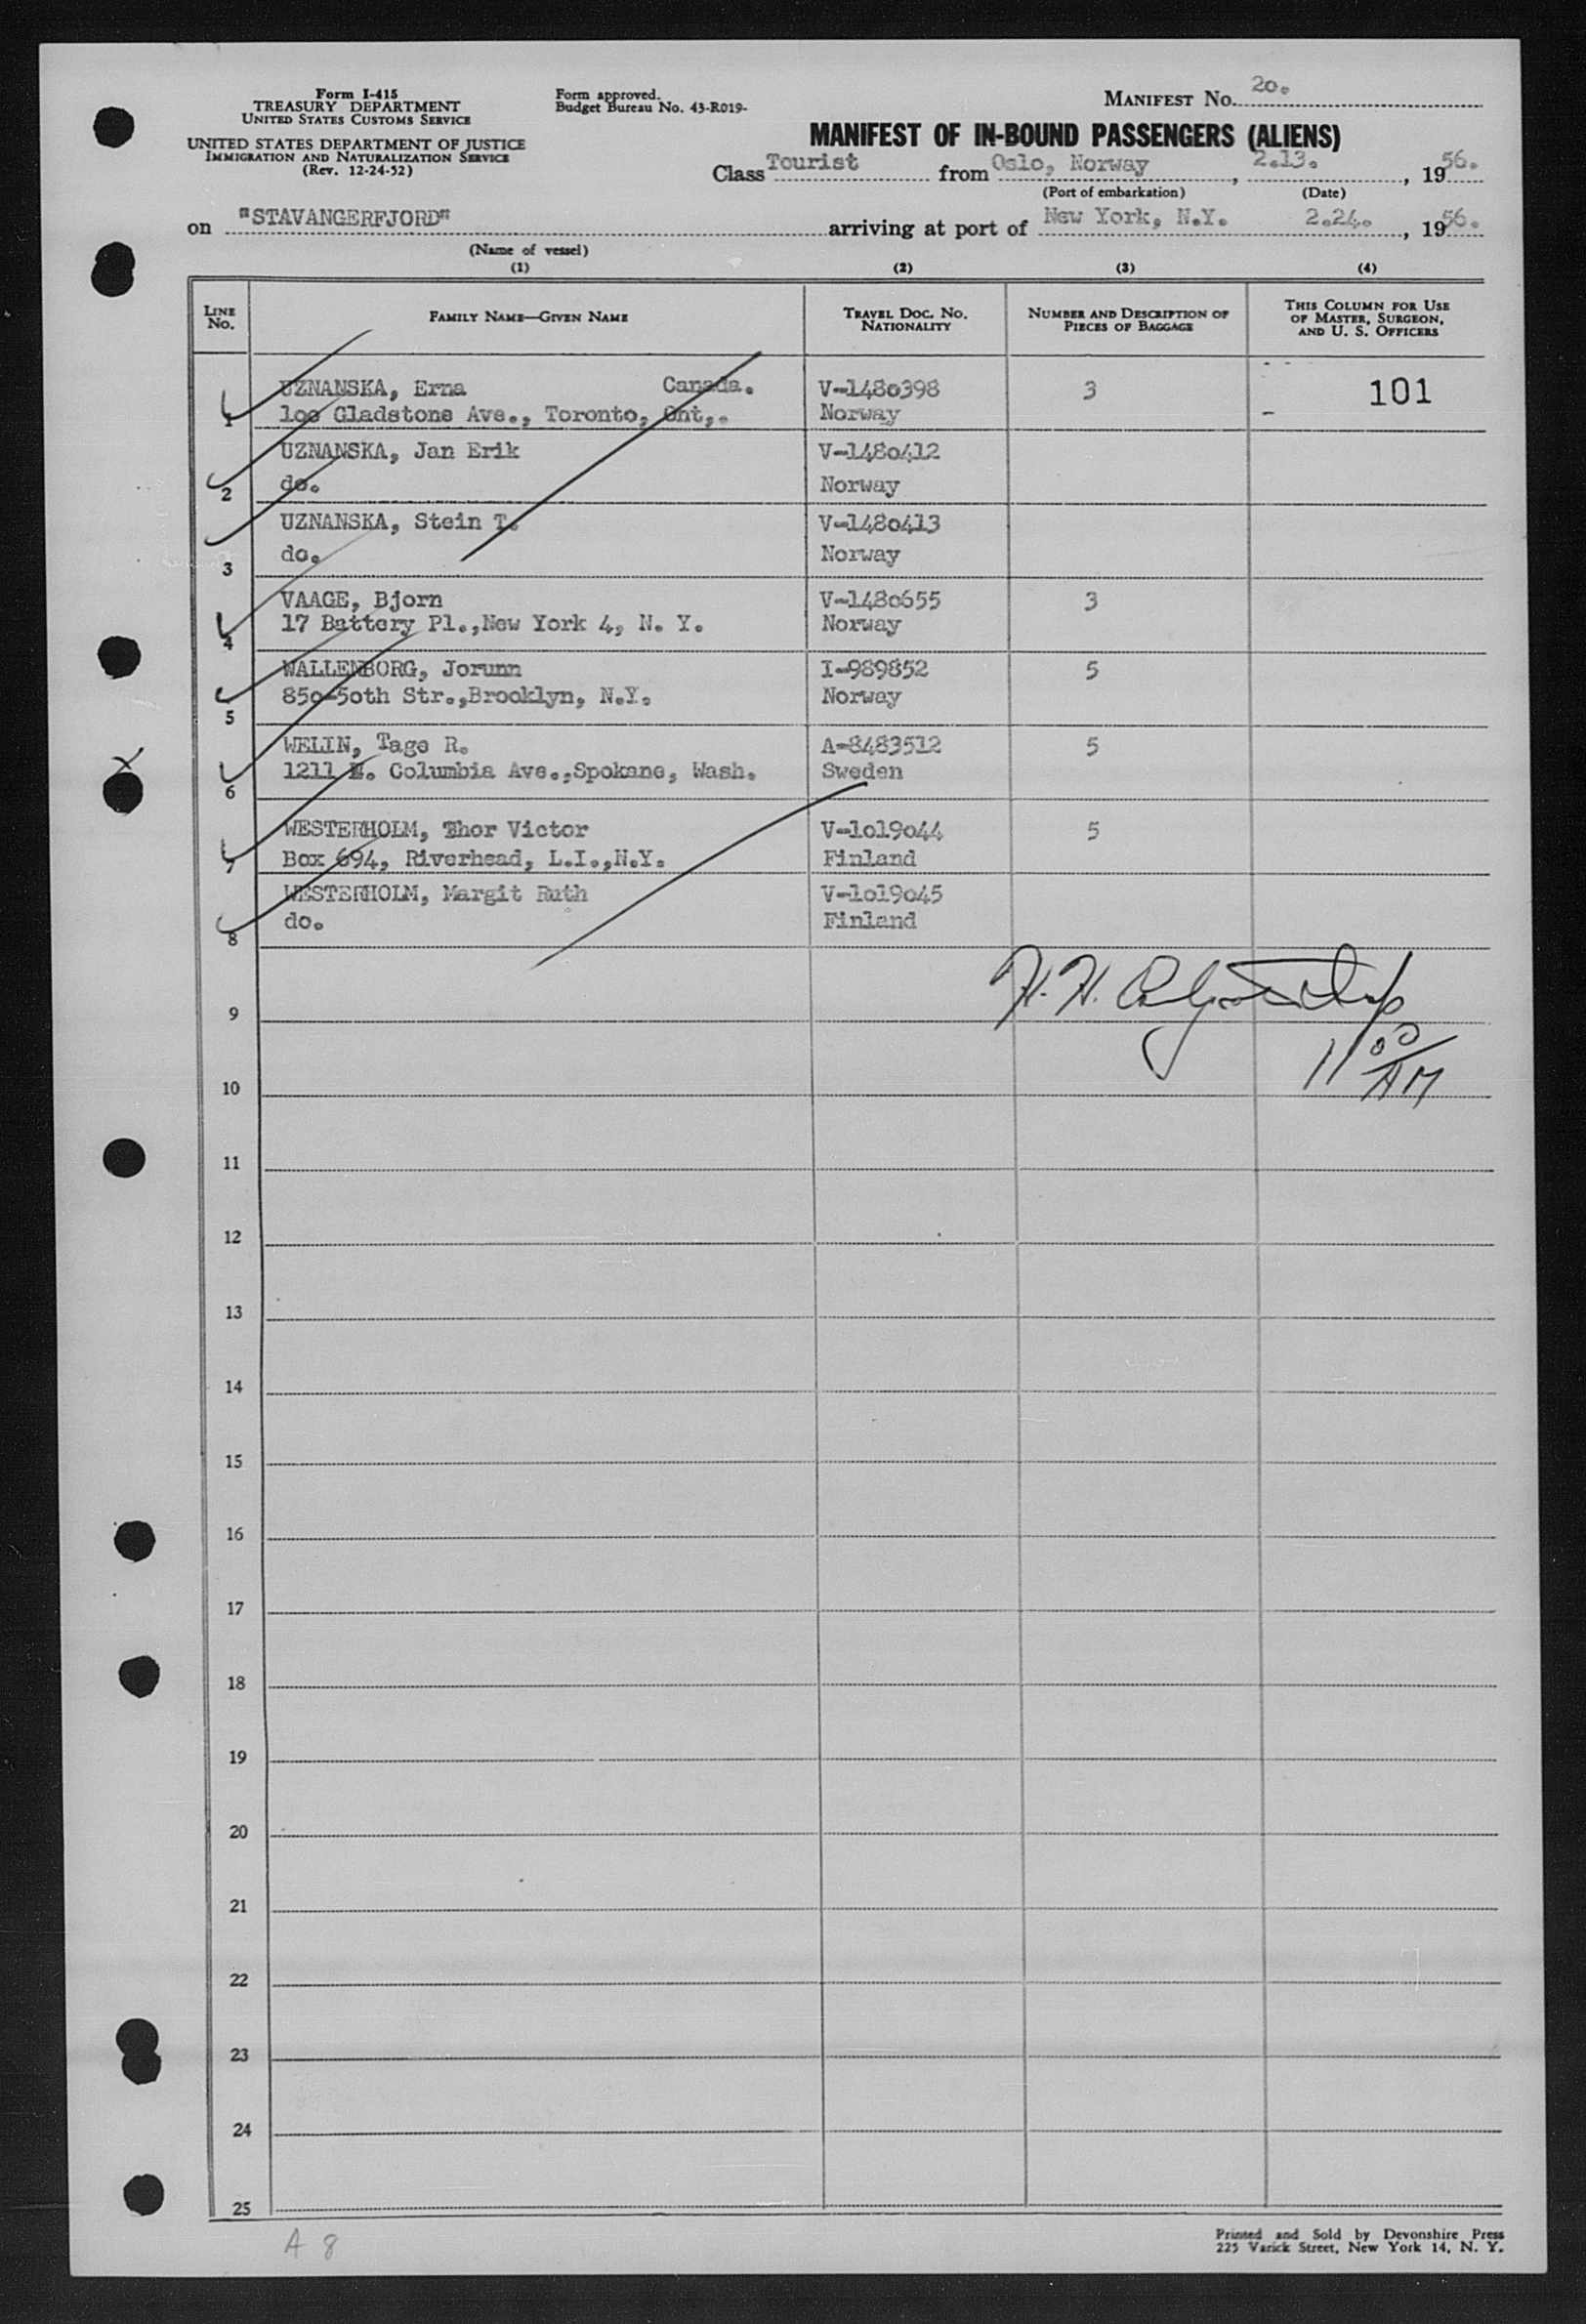 Form I-415
TREASURY DEPARTMENT
UNITED STATES CUSTOMS SERVICE
UNITED STATES DEPARTMENT OF JUSTICE
IMMIGRATION AND NATURALIZATION SERVICE
(Rev. 12-24-52)
Form approved.
Budget Bureau No. 43-R019-
MANIFEST No. 20.
MANIFEST OF IN-BOUND PASSENGERS (ALIENS)
Class Tourist from Oslo, Norway, 2.13., 1956.
(Port of embarkation) (Date)
on "STAVANGERFJORD" arriving at port of New York, N.Y. 2.24., 1956.
(Name of vessel)
(1) (2) (3) (4)
LINE No. FAMILY NAME—GIVEN NAME TRAVEL DOC. No. NATIONALITY NUMBER AND DESCRIPTION OF PIECES OF BAGGAGE THIS COLUMN FOR USE OF MASTER, SURGEON, AND U. S. OFFICERS
UZNANSKA, Erna Canada. V-1480398 3 101
1 100 Gladstone Ave., Toronto, Ont,. Norway
UZNANSKA, Jan Erik V-1480412
2 do. Norway
UZNANSKA, Stein T. V-1480413
3 do. Norway
VAAGE, Bjorn V-1480655 3
4 17 Battery Pl.,New York 4, N. Y. Norway
WALLENBORG, Jorunn I-989852 5
5 850-50th Str.,Brooklyn, N.Y. Norway
WELIN, Tage R. A-8483512 5
6 1211 N. Columbia Ave.,Spokane, Wash. Sweden
WESTERHOLM, Thor Victor V-1019044 5
7 Box 694, Riverhead, L.I.,N.Y. Finland
WESTERHOLM, Margit Ruth V-1019045
8 do. Finland
H. H.
9
11 00 AM
10
11
12
13
14
15
16
17
18
19
20
21
22
23
24
25
A 8
Printed and Sold by Devonshire Press
225 Varick Street, New York 14, N. Y.